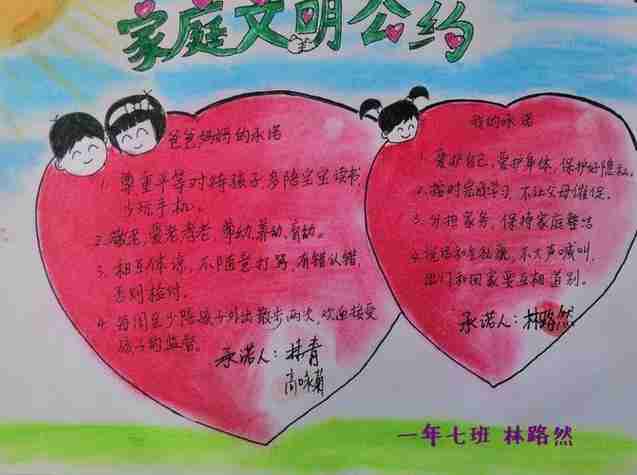 家庭文明公约
爸爸妈妈的承诺
1. 尊重平等对待孩子,多陪宝宝读书,
少玩手机。
2. 敬老,爱老,孝老,
3. 相互体谅,不随意打骂,有错认错,
否则检讨。
4. 每周至少陪孩子外出散步两次,欢迎接受
孩子的监督。
承诺人:林青
高咏菊
我的承诺
1. 爱护自己,爱护身体,保护好隐私。
2. 按时完成学习,不让父母催促。
3. 分担家务,保持家庭整洁
4. 说话和气礼貌,不大声喊叫,
出门和回家要互相道别。
承诺人:林路然
一年七班 林路然